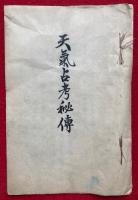 天氣占考秘傳